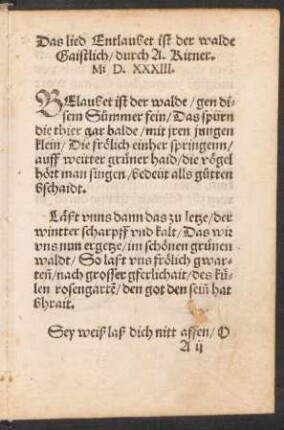 Das lied Entlaubet ist der walde
Gaistlich/ durch A. Kitner.
M D. XXXIII.
BElaubet ist der walde/ gen di-
sem Sümmer fein/ Das spürn
die thier gar balde/ mit jren jungen
klein/ Die frölich einher springenn/
auff weitter grüner haid/ die vögel
hört man singen/ bedeut alls gütten
bschaidt.
Läst vnns dann das zu letze/ der
wintter scharpff vnd kalt/ Das wir
vns nun ergetze/ im schönen grünen
waldt/ So last vns frölich gwar-
ten/ nach grosser gferlichait/ des kü-
len rosengartē/ den got den sein̄ hat
bhrait.
Sey weiß laß dich nitt affen/ O
A ij